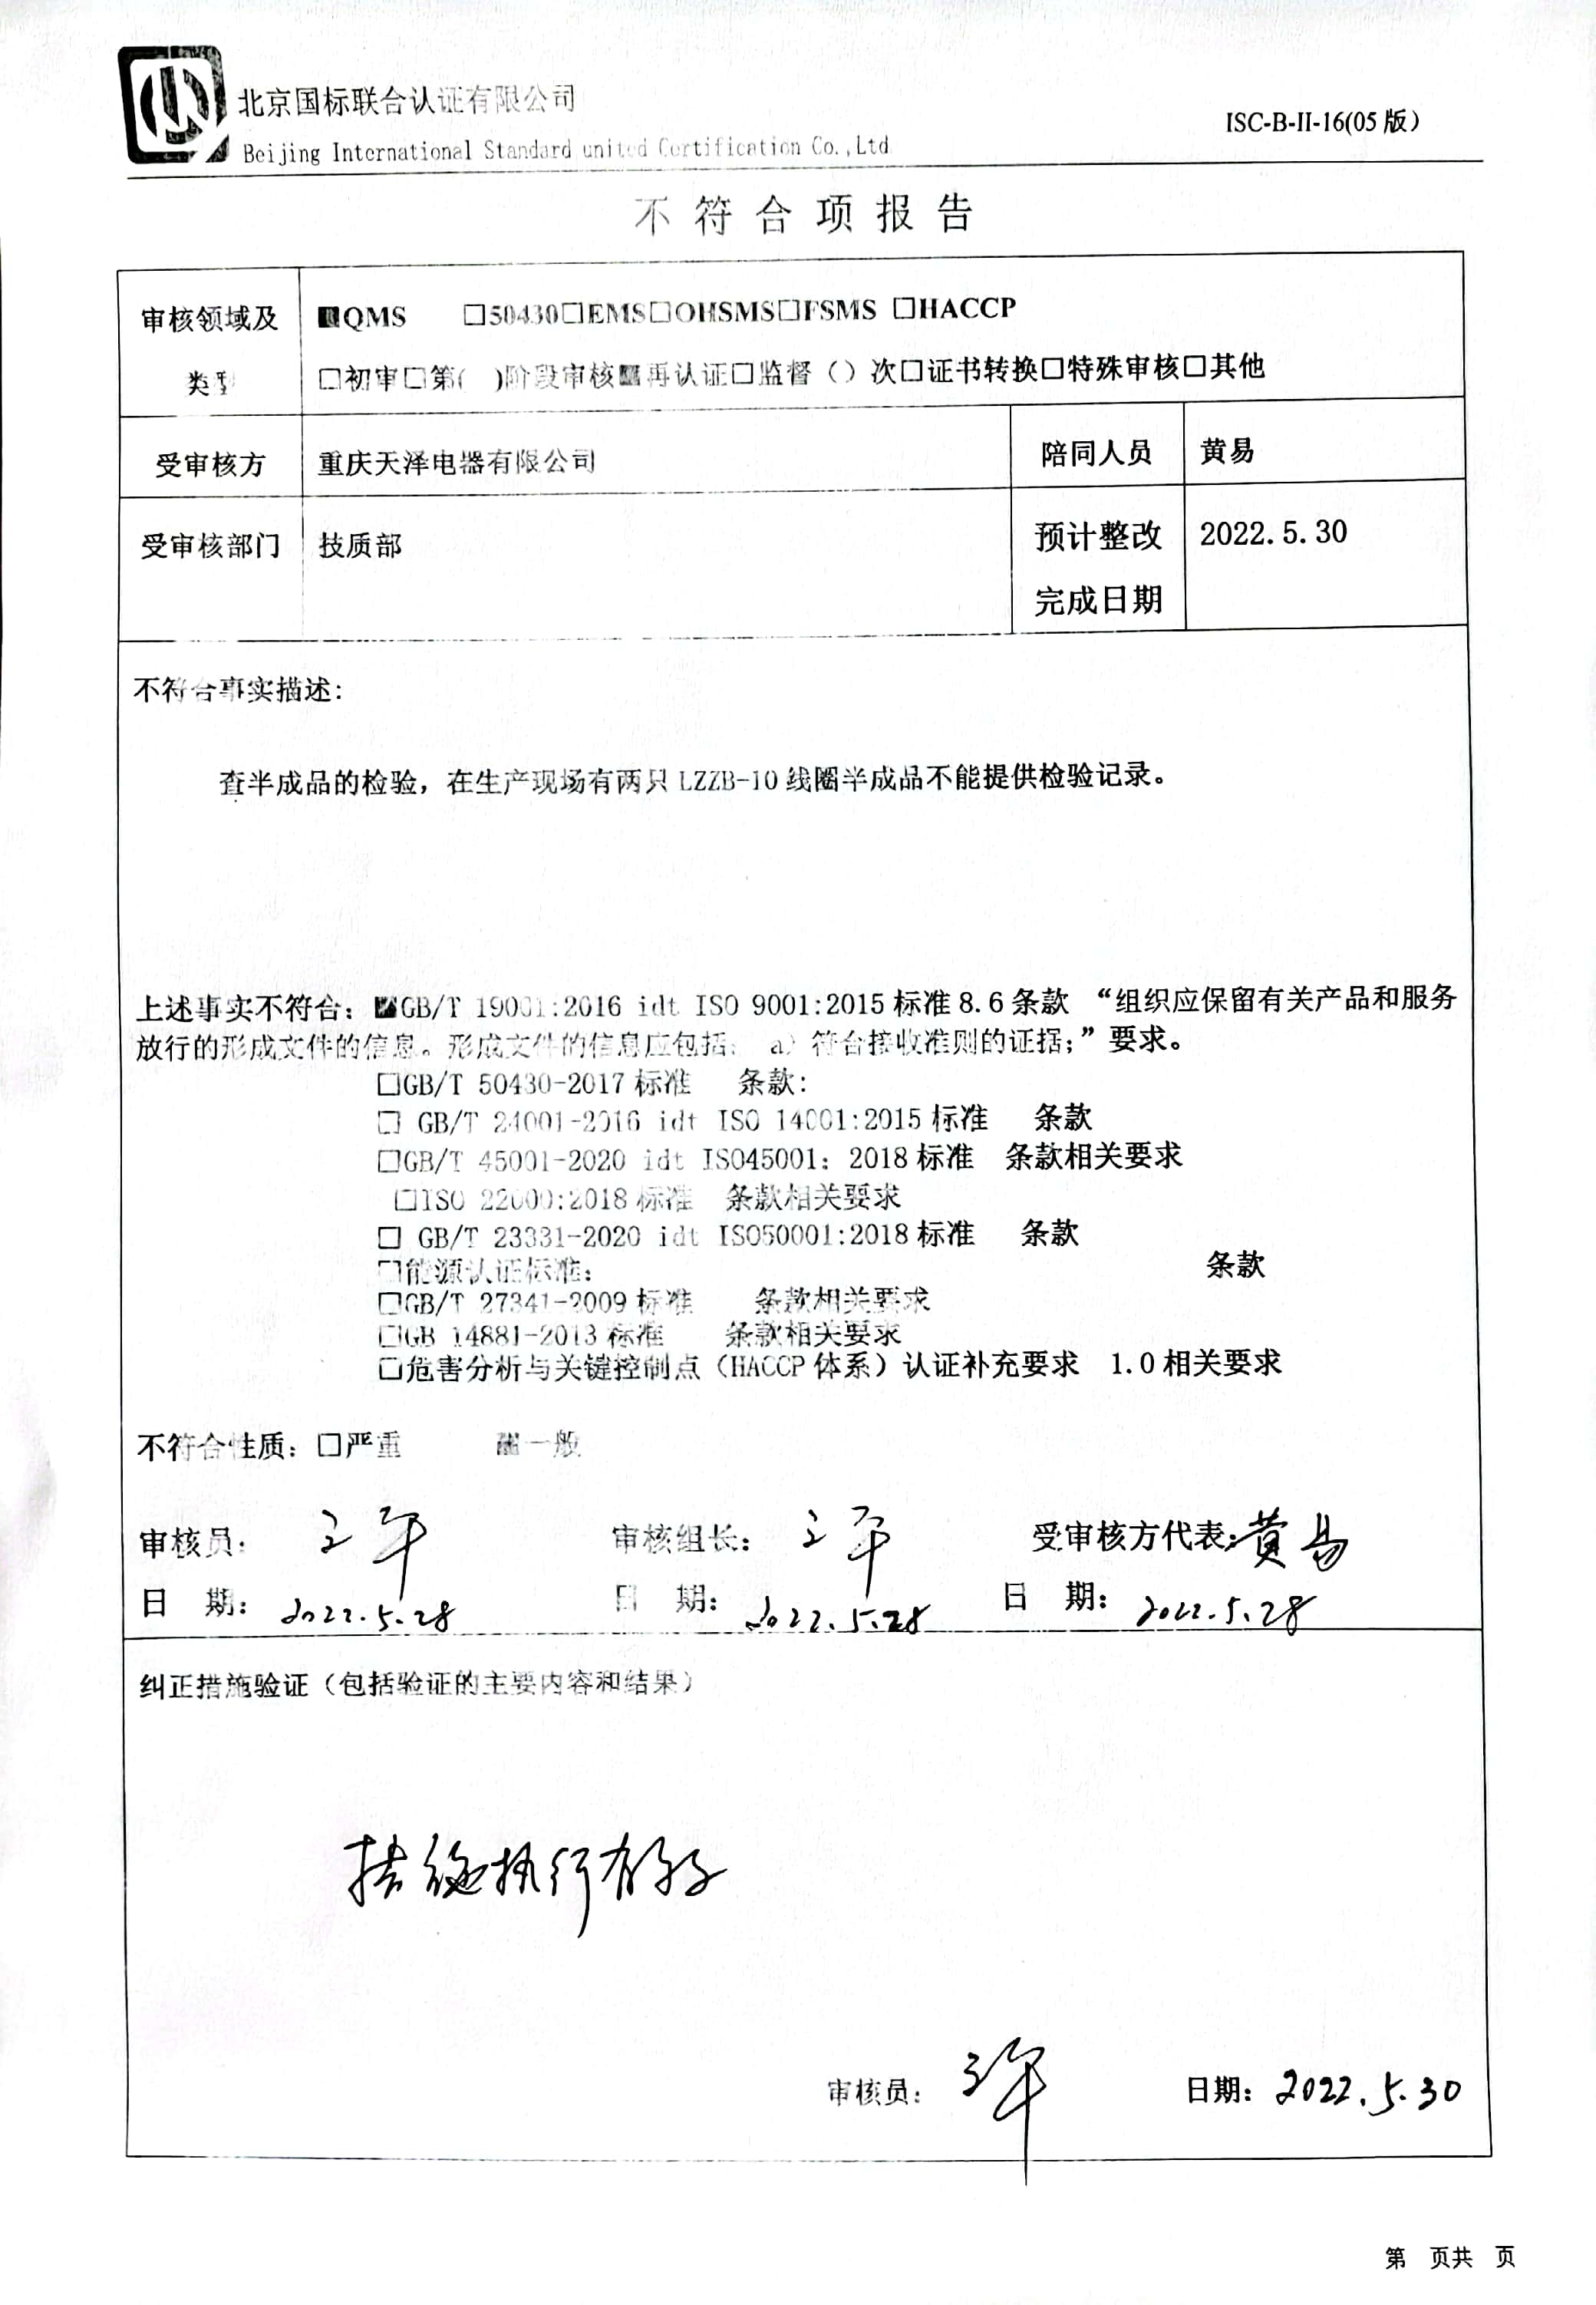 北京国标联合认证有限公司
Beijing International Standard united Certification Co.,Ltd
ISC-B-II-16(05版）
不符合项报告
审核领域及类型
■QMS □50430□EMS□OHSMS□FSMS □HACCP
□初审□第( )阶段审核■再认证□监督（）次□证书转换□特殊审核□其他
受审核方 重庆天泽电器有限公司 陪同人员 黄易
受审核部门 技质部 预计整改完成日期 2022.5.30
不符合事实描述：
查半成品的检验，在生产现场有两只LZZB-10线圈半成品不能提供检验记录。
上述事实不符合：■GB/T 19001:2016 idt ISO 9001:2015标准8.6条款 “组织应保留有关产品和服务
放行的形成文件的信息。形成文件的信息应包括： a）符合接收准则的证据；”要求。
□GB/T 50430-2017标准 条款：
□ GB/T 24001-2016 idt ISO 14001:2015标准 条款
□GB/T 45001-2020 idt ISO45001：2018标准 条款相关要求
□ISO 22000:2018标准 条款相关要求
□ GB/T 23331-2020 idt ISO50001:2018标准 条款
□能源认证标准： 条款
□GB/T 27341-2009标准 条款相关要求
□GB 14881-2013标准 条款相关要求
□危害分析与关键控制点（HACCP体系）认证补充要求 1.0相关要求
不符合性质：□严重 ■一般
审核员： 审核组长： 受审核方代表：黄易
日 期：2022.5.28 日 期：2022.5.28 日 期：2022.5.28
纠正措施验证（包括验证的主要内容和结果）
措施执行有效
审核员： 日期：2022.5.30
第 页共 页